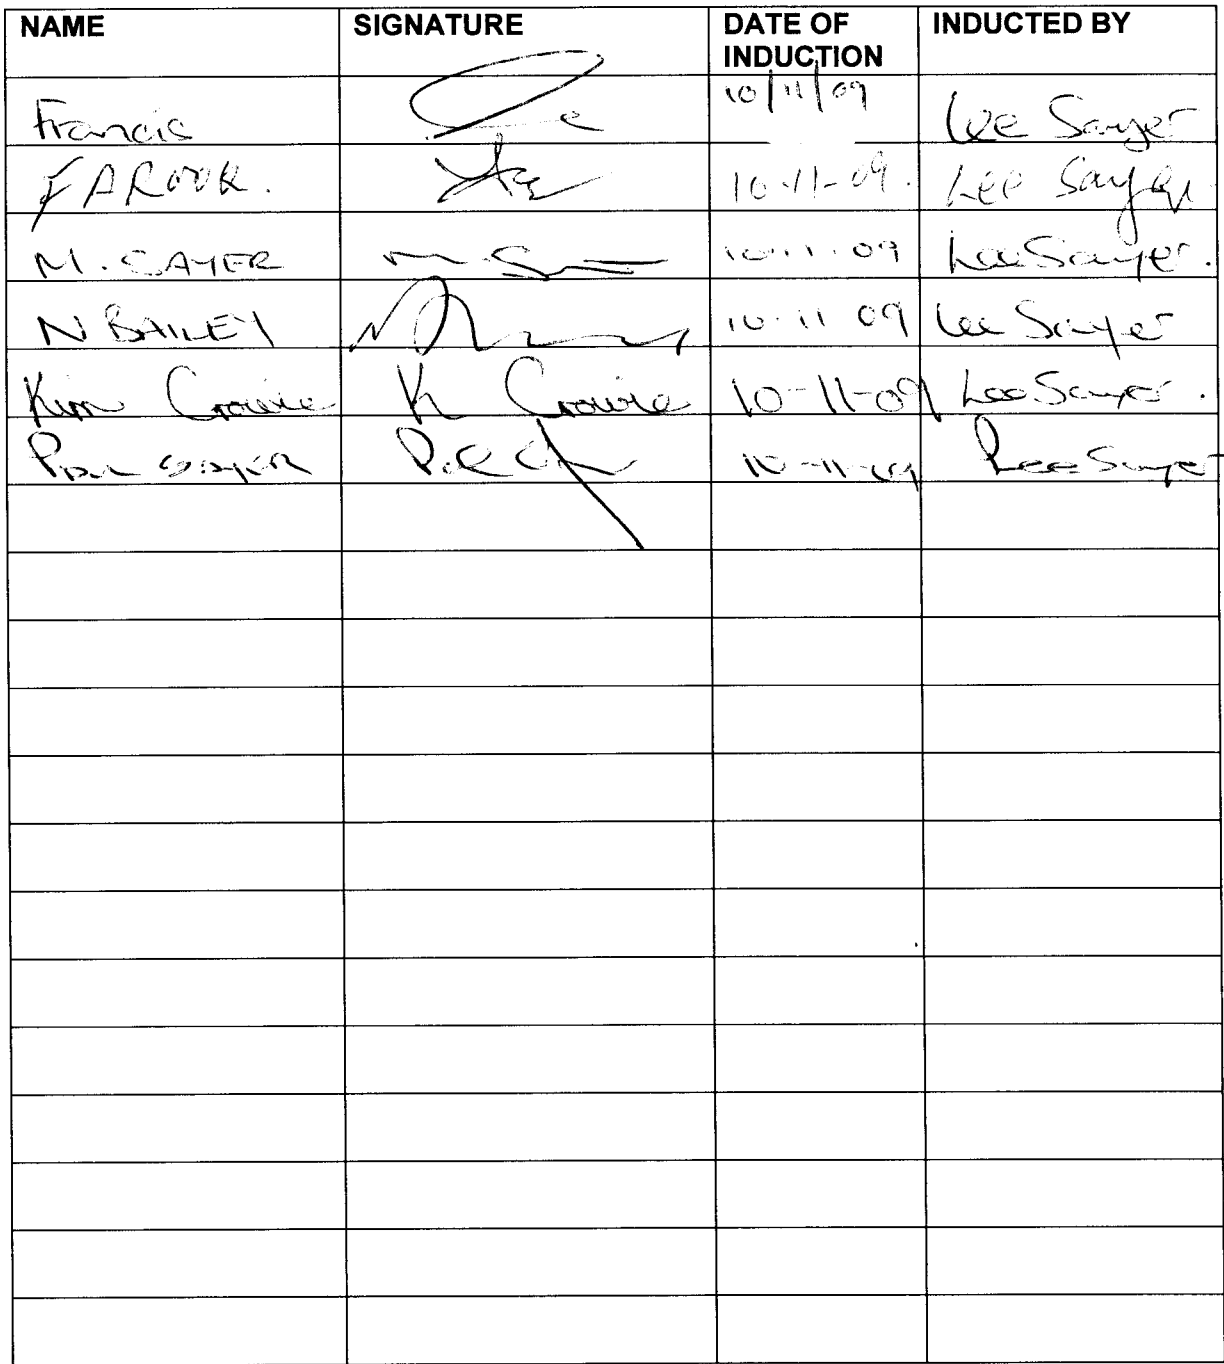 NAME SIGNATURE DATE OF INDUCTION INDUCTED BY
Francis 10/11/09 Lee Sayer
FAROOK. 10-11-09. Lee Sayer
M. SAYER M. S 10.11.09 Lee Sayer.
N BAILEY 10.11 09 Lee Sayer
Kim Crowie K Crowie 10-11-09 Lee Sayer.
Paul SAYER 10-11-09 Lee Sayer